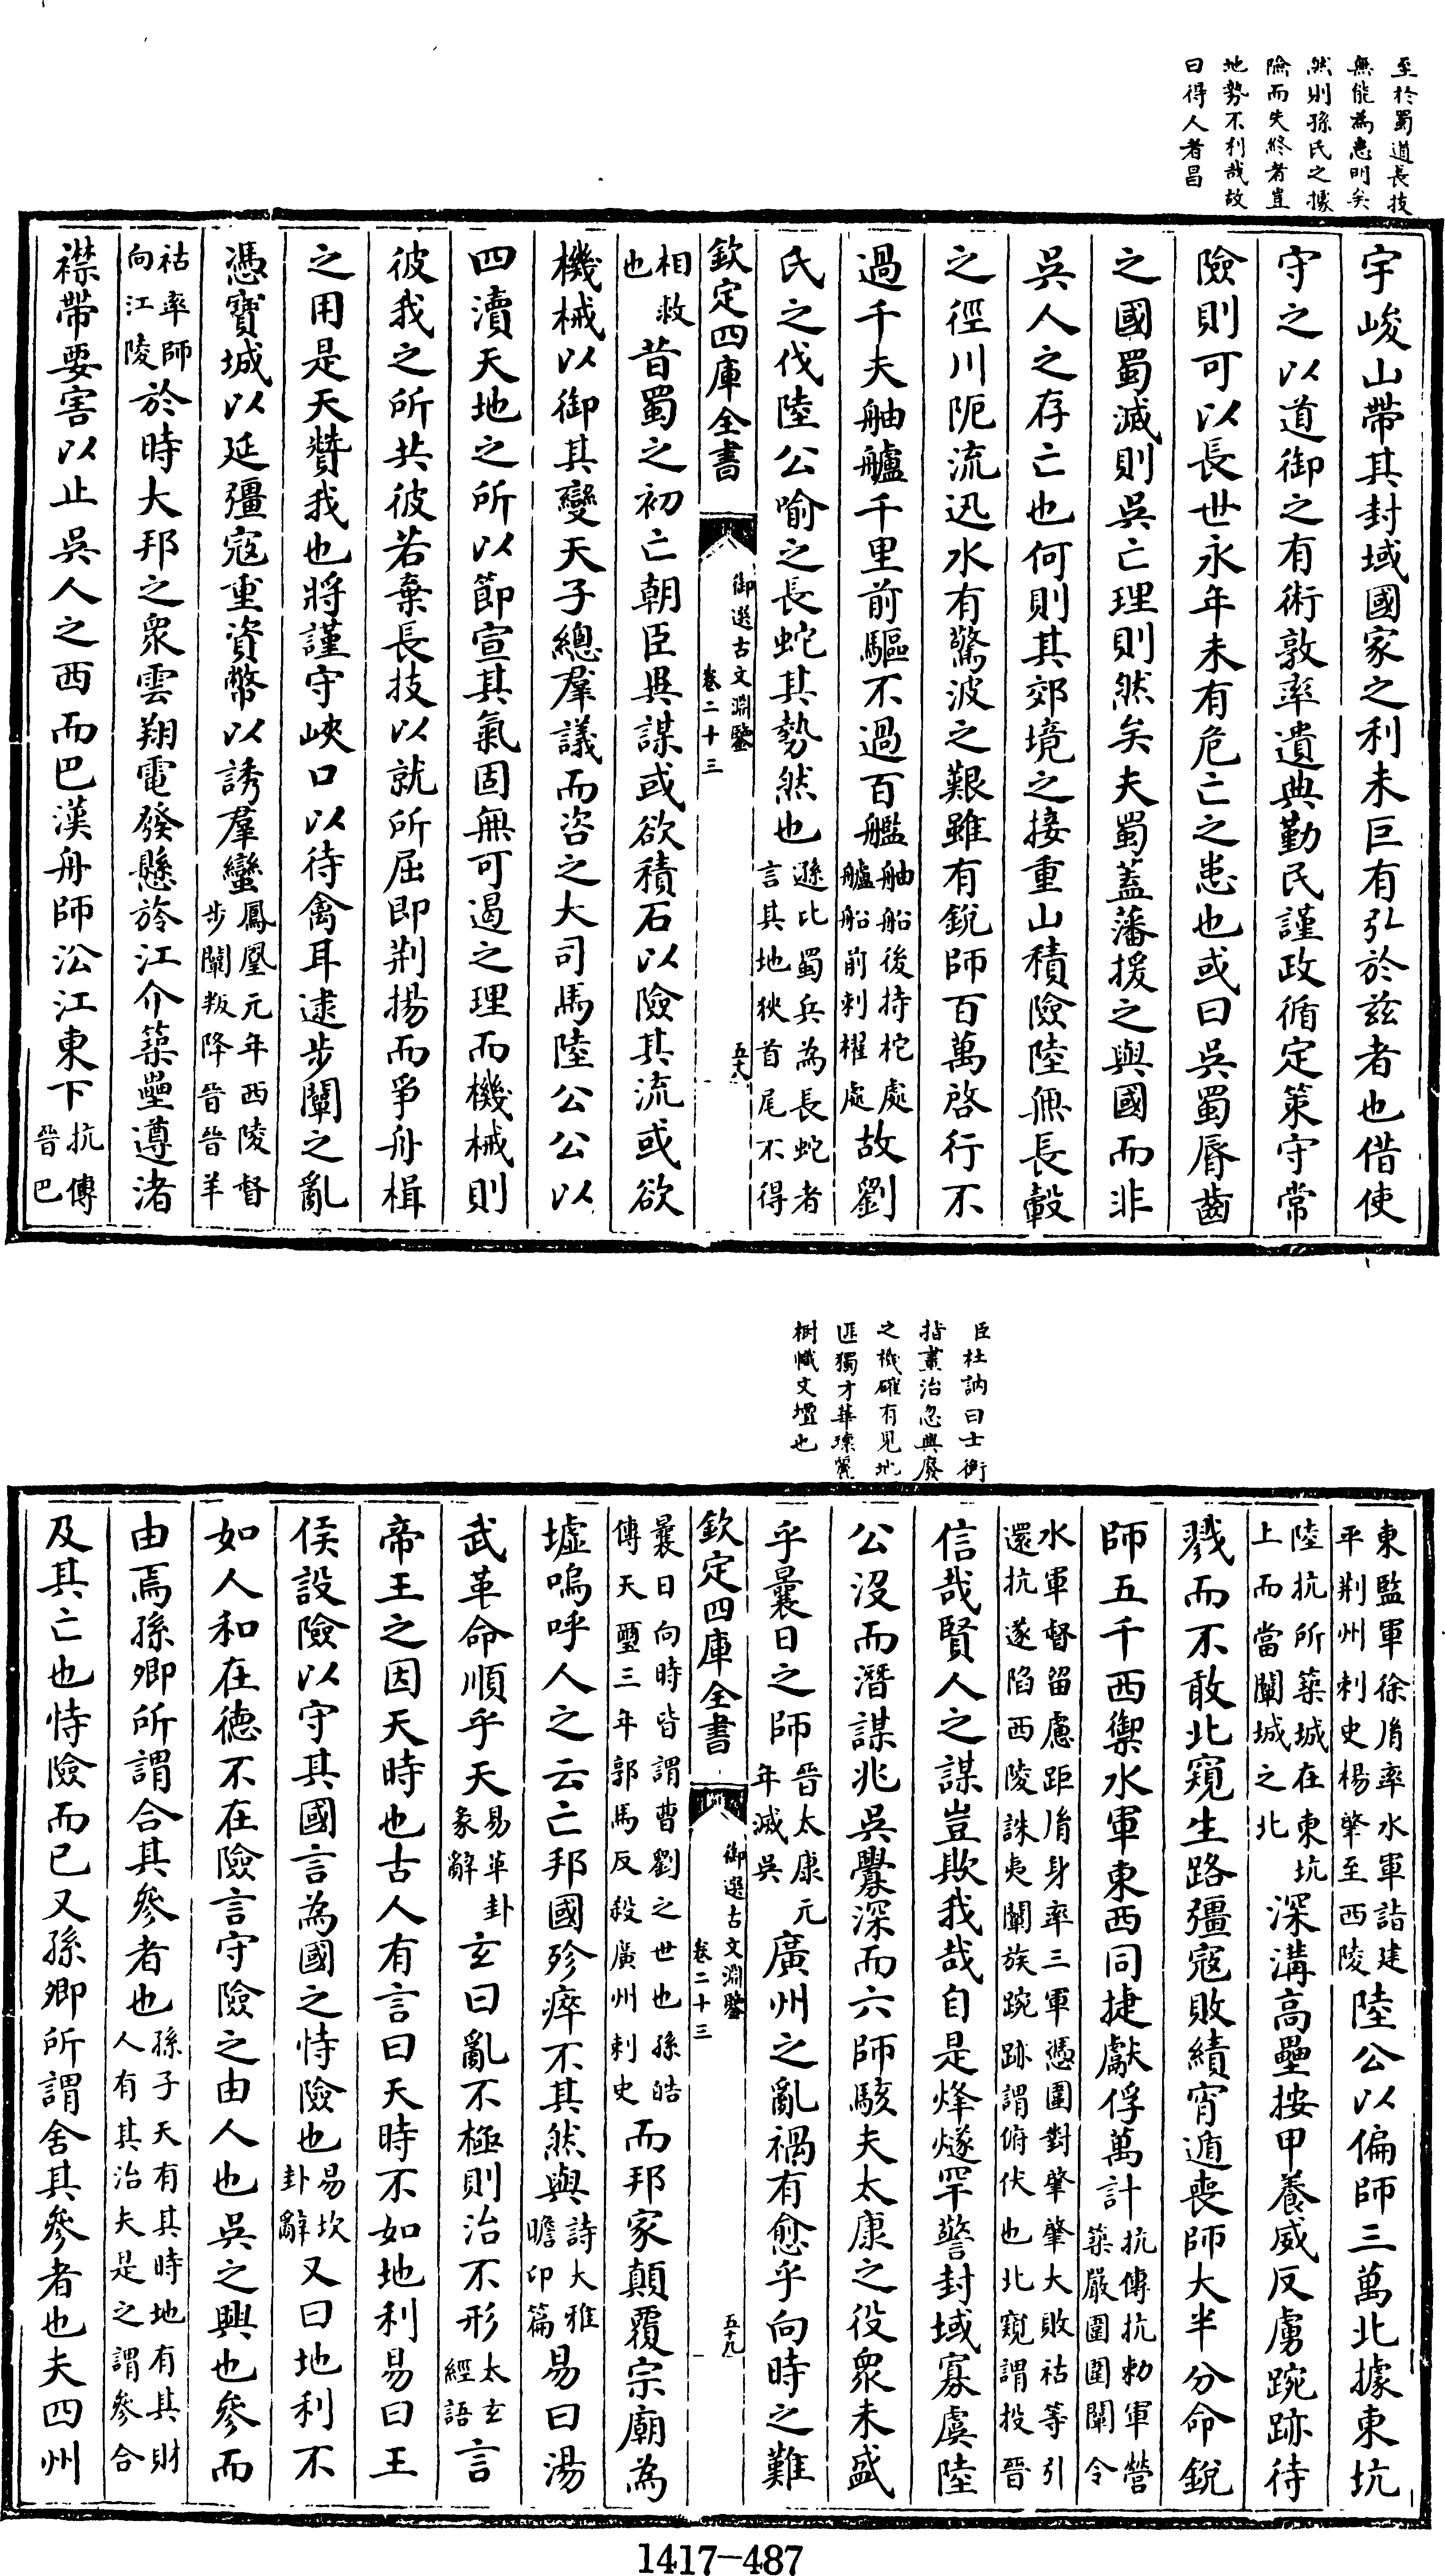 至於蜀道長技
無能為患明矣
然則孫氏之據
險而失終者豈
地勢不利哉故
曰得人者昌
宇峻山帶其封域國家之利未巨有弘於茲者也借使
守之以道御之有術敦率遺典勤民謹政循定策守常
險則可以長世永年未有危亡之患也或曰吳蜀脣齒
之國蜀滅則吳亡理則然矣夫蜀蓋藩援之與國而非
吳人之存亡也何則其郊境之接重山積險陸無長轂
之徑川阨流迅水有驚波之艱雖有銳師百萬啓行不
過千夫舳艫千里前驅不過百艦舳船後持柁處艫船前刺櫂處故劉
氏之伐陸公喻之長蛇其勢然也遜比蜀兵為長蛇者言其地狹首尾不得
欽定四庫全書
御選古文淵鑒
卷二十三
五十八
相救也昔蜀之初亡朝臣異謀或欲積石以險其流或欲
機械以御其變天子總羣議而咨之大司馬陸公公以
四瀆天地之所以節宣其氣固無可遏之理而機械則
彼我之所共彼若棄長技以就所屈即荆揚而爭舟楫
之用是天贊我也將謹守峽口以待禽耳逮步闡之亂
憑寶城以延彊寇重資幣以誘羣蠻鳳凰元年西陵督步闡叛降晉晉羊
祜率師向江陵於時大邦之衆雲翔電發懸旍江介築壘遵渚
襟帶要害以止吳人之西而巴漢舟師㳂江東下抗傳晉巴
臣杜訥曰士衡
指畫治忽興廢
之機確有見地
匪獨才華瑰麗
樹幟文壇也
東監軍徐胤率水軍詣建平荆州刺史楊肇至西陵陸公以偏師三萬北據東坑
陸抗所築城在東坑上而當闡城之北深溝高壘按甲養威反虜踠跡待
戮而不敢北窺生路彊寇敗績宵遁喪師大半分命銳
師五千西禦水軍東西同捷獻俘萬計抗傳抗勅軍營築嚴圍圍闡令
水軍督留慮距胤身率三軍憑圍對肇肇大敗祜等引還抗遂陷西陵誅夷闡族踠跡謂俯伏也北窺謂投晉
信哉賢人之謀豈欺我哉自是烽燧罕警封域寡虞陸
公沒而潛謀兆吳釁深而六師駭夫太康之役衆未盛
乎曩日之師晉太康元年滅吳廣州之亂禍有愈乎向時之難
欽定四庫全書
御選古文淵鑒
卷二十三
五十九
曩日向時皆謂曹劉之世也孫皓傳天璽三年郭馬反殺廣州刺史而邦家顛覆宗廟為
墟嗚呼人之云亡邦國殄瘁不其然與詩大雅瞻卬篇易曰湯
武革命順乎天易革卦彖辭玄曰亂不極則治不形太玄經語言
帝王之因天時也古人有言曰天時不如地利易曰王
侯設險以守其國言為國之恃險也易坎卦辭又曰地利不
如人和在德不在險言守險之由人也吳之興也參而
由焉孫卿所謂合其參者也孫子天有其時地有其財人有其治夫是之謂參合
及其亡也恃險而已又孫卿所謂舍其參者也夫四州
1417-487